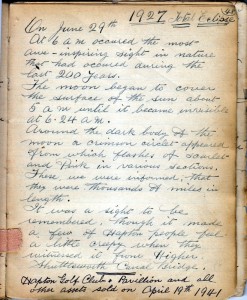 1927 Total Eclipse
On June 29th
At 6 am occured the most
awe-inspiring sight in nature
that had occured during the
last 200 Years.
The moon began to cover
the surface of the sun about
5 am until it became invisible
at 6.24 am.
Around the dark body of the
moon a crimson circlet appeared
from which flashes of scarlet
and Pink in various sections.
These we were informed, that
they were thousands of miles in
length.
It was a sight to be
remembered, though it made
a few of Hapton people feel
a little creepy when they
witnessed it from Higher
Shuttleworth Canal Bridge.
Hapton Golf Club & Pavillion and all
other assets sold on April 19th 1941